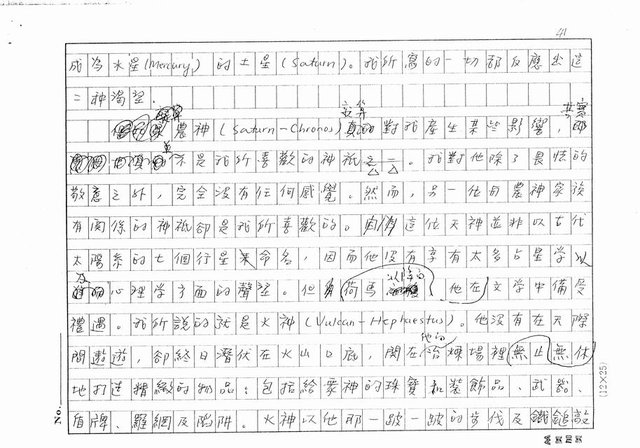 41
成為水星(Mercury)的土星(Saturn)。我所寫的一切都反應出這
二種渴望.
農神(Saturn-Chronos)就算真的對我產生某些影響,其實
不是我所喜歡的神祇之一。我對他除了畏怯的
敬意之外,完全沒有任何感覺。然而,另一位與農神家族
有關係的神祇卻是我所喜歡的。這位天神並非以古代
太陽系的七個行星來命名,因而他沒有享有太多占星學以
及心理學方面的聲望。但荷馬以降的他在文學中備受
禮遇。我所說的就是火神(Vulcan-Hephaestus)。他沒有在天際
間遨遊,卻終日潛伏在火山口底,關在他的冶煉場裡無止無休
地打造精緻的物品:包括給眾神的珠寶和裝飾品、武器、
盾牌、羅網及陷阱。火神以他那一跛一跛的步伐及鐵鎚敲
No.
(12×25)